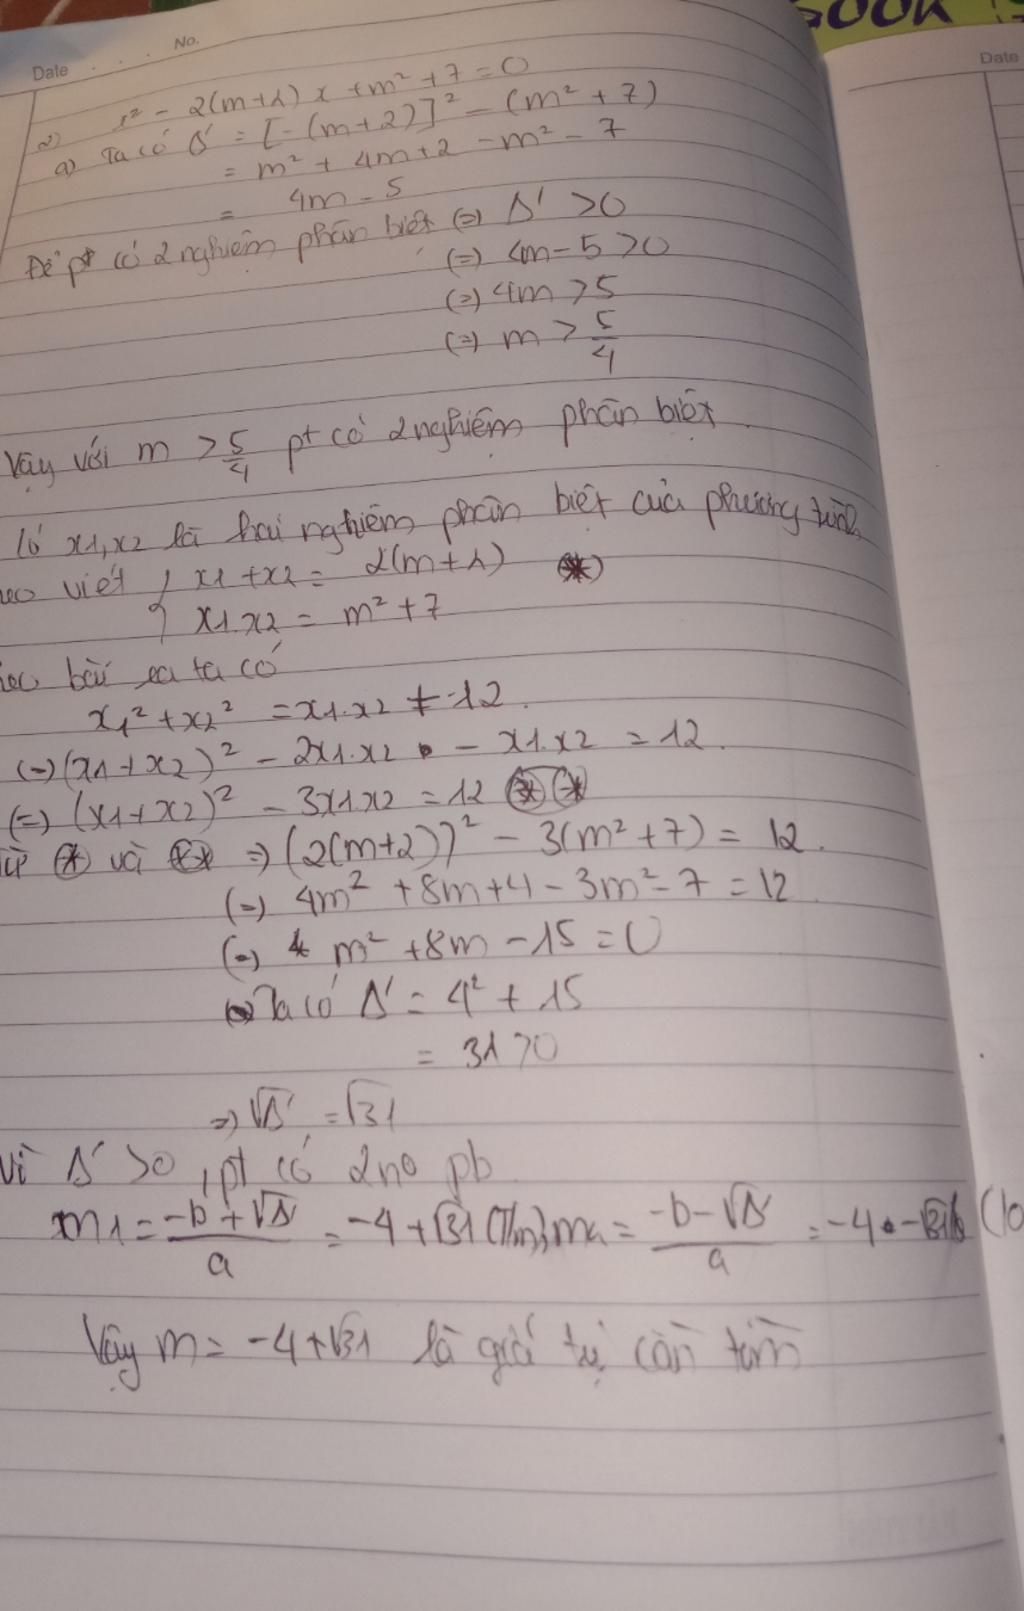 BOOK
Date No.
Date
2) x² - 2(m+2)x + m² + 7 = 0
a) Ta có Δ' = [-(m+2)]² - (m² + 7)
= m² + 4m + 2 - m² - 7
= 4m - 5
Để pt có 2 nghiệm phân biệt (=) Δ' > 0
(=) 4m - 5 > 0
(=) 4m > 5
(=) m > 5/4
Vậy với m > 5/4 pt có 2 nghiệm phân biệt
Có x1, x2 là hai nghiệm phân biệt của phương trình
eo viét { x1 + x2 = 2(m+2) (*)
x1.x2 = m² + 7
eo bài ra ta có
x1² + x2² = x1.x2 + 12.
(=) (x1 + x2)² - 2x1.x2 - x1.x2 = 12.
(=) (x1 + x2)² - 3x1x2 = 12 (*)(*)
Từ (*) và (**) => (2(m+2))² - 3(m² + 7) = 12.
(=) 4m² + 8m + 4 - 3m² - 7 = 12
(=) m² + 8m - 15 = 0
Ta có Δ' = 4² + 15
= 31 > 0
=> √Δ' = √31
Vì Δ' > 0, pt có 2 no pb
m1 = (-b + √Δ')/a = -4 + √31 (Thm), m2 = (-b - √Δ')/a = -4 - √31 (lo
Vậy m = -4 + √31 là giá trị cần tìm